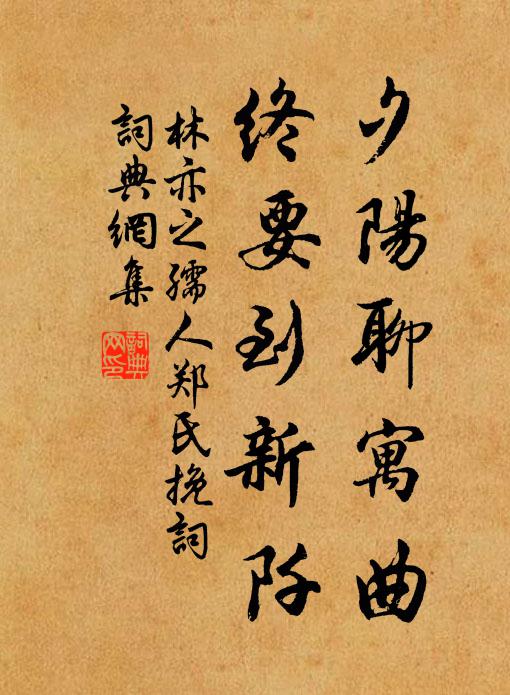 夕陽聊寓曲
終要到新阡
林亦之孺人郑氏挽詞
詞典網集